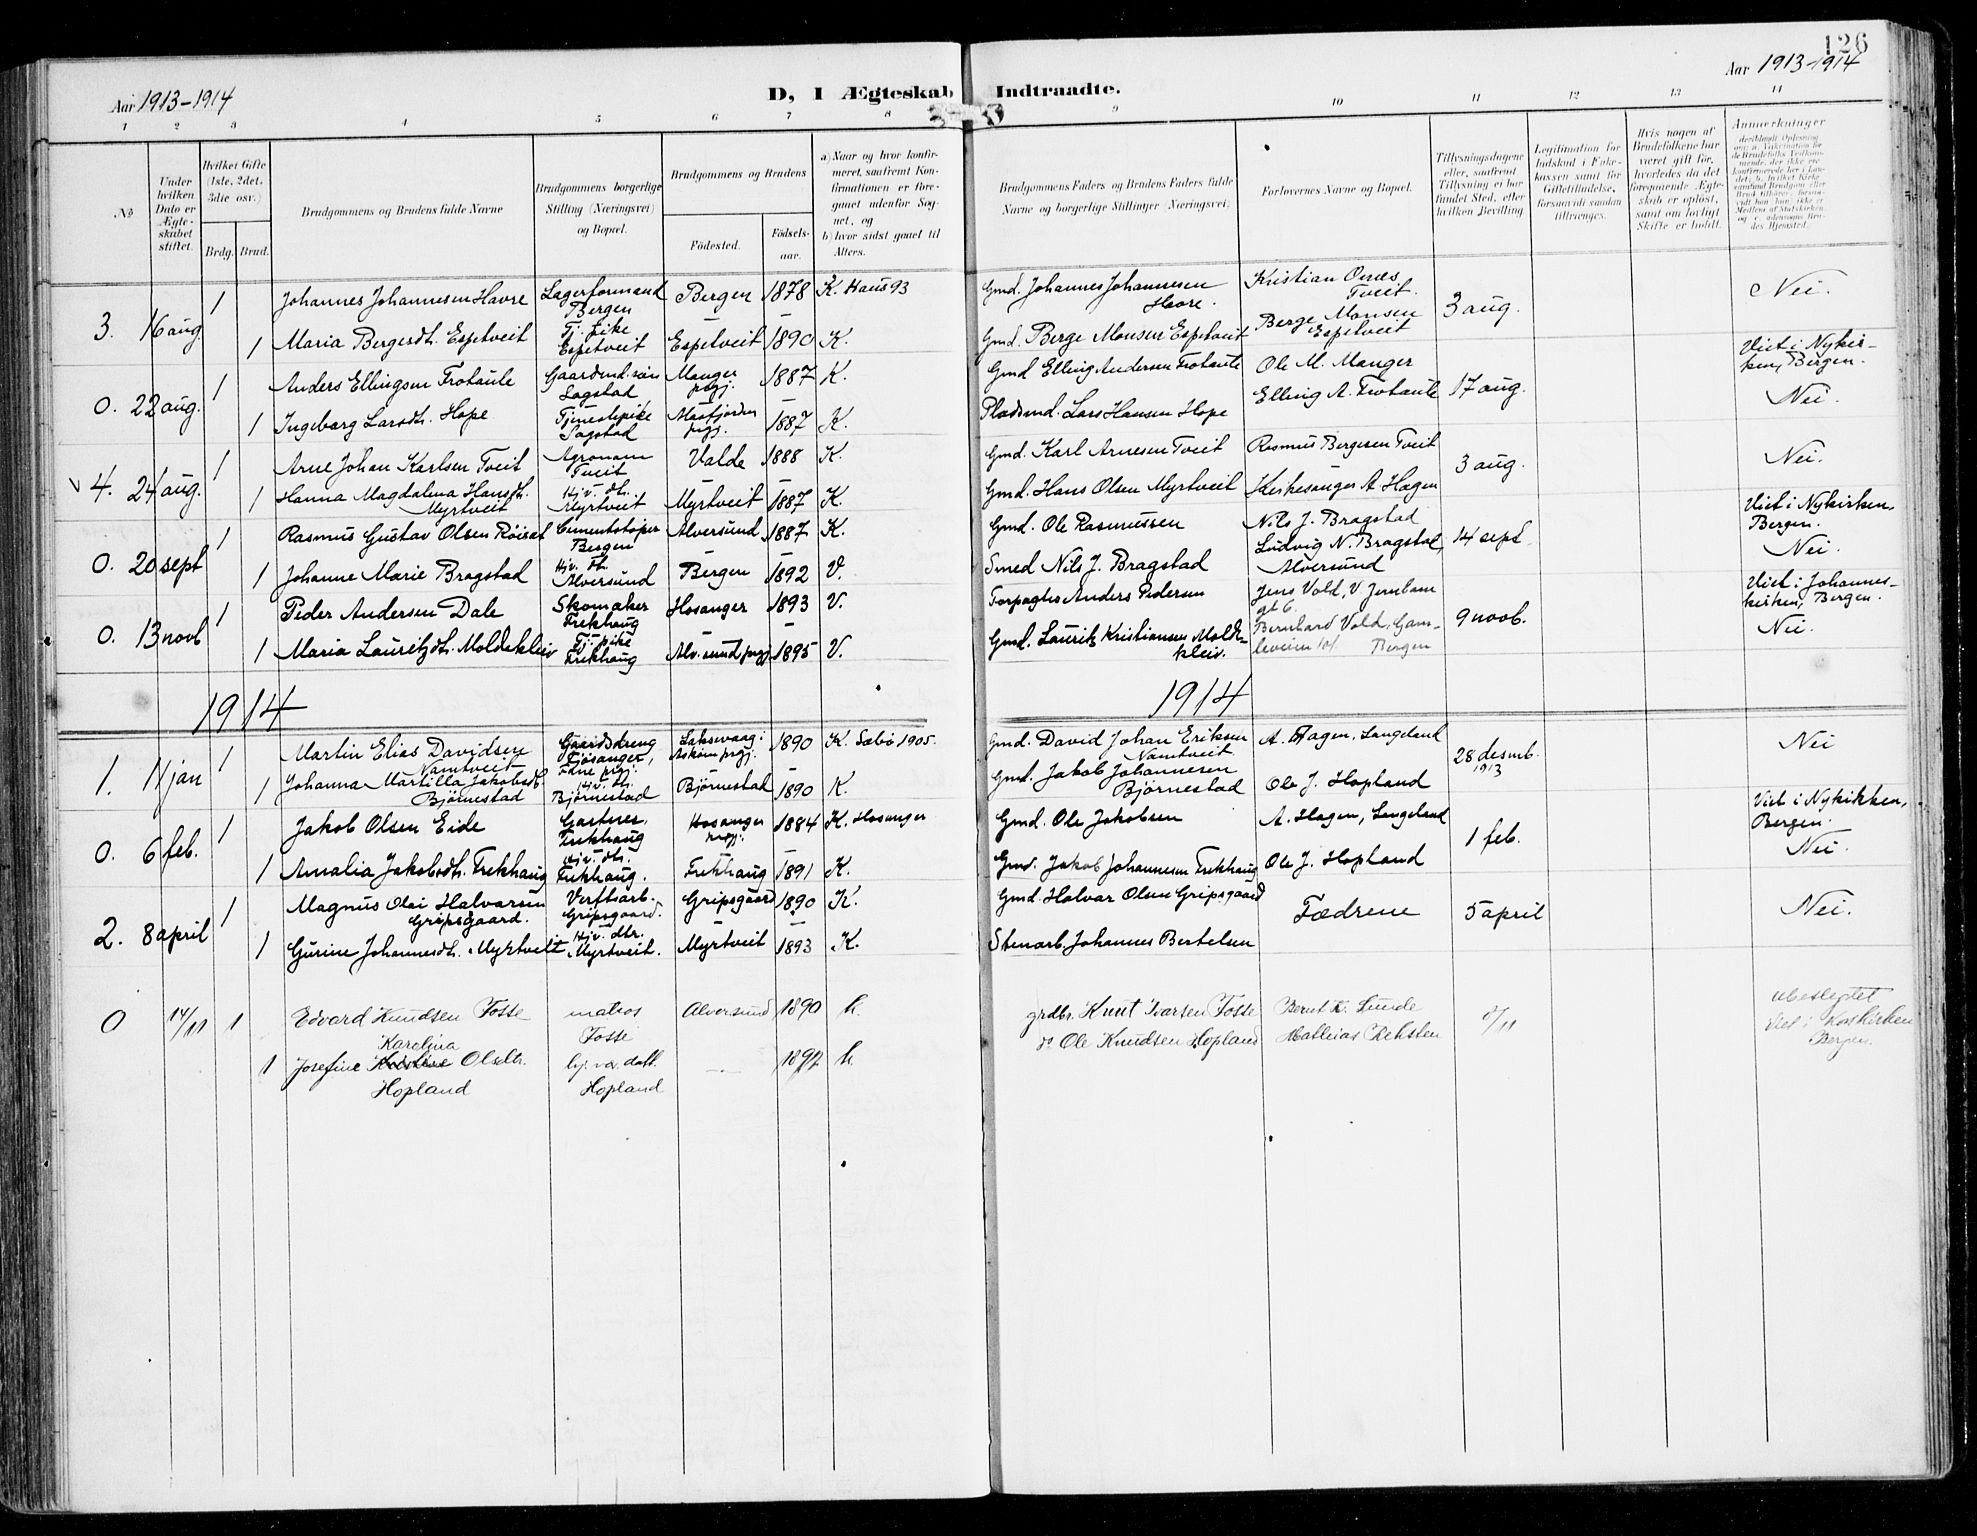 126
Aar 1913-1914
D, I Ægteskab Indtraadte.
Aar 1913-1914
1 2 3 4 5 6 7 8 9 10 11 12 13 14
No
Under hvilken Dato er Ægteskabet stiftet.
Hvilket Gifte (1ste, 2det, 3die osv.)
Brdg. Brud.
Brudgommens og Brudens fulde Navne
Brudgommens borgerlige Stilling (Næringsvei) og Bopæl.
Brudgommens og Brudens
Födested.
Födselsaar.
a) Naar og hvor konfirmeret, saafremt Konfirmationen er foregaaet udenfor Sognet, og
b) hvor sidst gaaet til Alters.
Brudgommens Faders og Brudens Faders fulde Navne og borgerlige Stillinger (Næringsvei)
Forlovernes Navne og Bopæl.
Tillysningsdagene eller, saafremt Tillysning ei har fundet Sted, efter hvilken Bevilling
Legitimation for Indskud i Enkekassen samt for Giftetilladelse, forsaavidt saadan tiltrænges.
Hvis nogen af Brudefolkene har været gift för, hvorledes da det foregaaende Ægteskab er oplöst, samt om lovligt Skifte er holdt.
Anmerkninger
3. 16 aug. 1 Johannes Johannesen Havre Lagerformand Bergen Bergen 1878 K. Haus 93 Gmd. Johannes Johannesen Havre. Kristian Tveit. 3 aug. Nei.
1 Maria Bergesdt. Espetveit Tj. pike Espetveit Espetveit 1890 K. Gmd. Berge Monsen Espetveit Berge Monsen Espetveit
0. 22 aug. 1 Anders Ellingsen Frotaule Gaardmd. søn Sagstad Manger prgj. 1887 K. Gmd Elling Andersen Frotaule Ole M. Manger 17 aug. Viet i Nykirken, Bergen.
1 Ingeborg Larsdt. Hope Tjenestepike Sagstad Masfjorden prgj. 1887 K. Pladsmd. Lars Hansen Hope Elling A. Frotaule Nei.
4. 24 aug. 1 Arne Johan Karlsen Tveit Agronom Tveit Valde 1888 K. Gmd. Karl Arnesen Tveit Rasmus Bergesen Tveit 3 aug. Nei.
1 Hanna Magdalena Hansdt. Myrtveit Hjv. dt. Myrtveit Myrtveit 1887 K. Gmd. Hans Olsen Myrtveit Kirkesanger A Hagen
0. 20 sept 1 Rasmus Gustav Olsen Cementstøper Bergen Alversund 1887 K. Gmd. Ole Rasmussen Nils J. Bragstad 14 sept. Viet i Nykirken, Bergen.
1 Johanne Marie Bragstad Hjv. dt. Alversund Bergen 1892 V. Smed Nils J. Bragstad Ludvig N. Bragstad, Alversund Nei.
0. 13 novb 1 Peder Andersen Dale Skomaker Frekhaug Hosanger 1893 V. Forpagter Anders Pedersen Jens Vold, 9 novb. Viet i Johanneskirken, Bergen.
1 Maria Lauritzdt. Moldekleiv Tj. pike Frekhaug Alv.sund prgj 1895 V. Gmd. Lauritz Kristiansen Moldekleiv. Bernhard Vold, Bergen Nei.
1914 1914
1. 11 jan 1 Martin Elias Davidsen Namtveit Gaardsdreng Fjøsanger, Fane prgj. Laksevaag i Askøen prgj. 1890 K. Sæbø 1905. Gmd. David Johan Eriksen Namtveit A. Hagen, Langeland 28 desmb. 1913 Nei
1 Johanna Martilla Jakobsdt. Bjørnestad Hjv. dt. Bjørnestad Bjørnestad 1890 K. Gmd. Jakob Johannesen Bjørnestad Ole J. Hopland
0. 6 feb. 1 Jakob Olsen Eide Gartner, Frekhaug Hosanger prgj. 1884 K. Hosanger Gmd. Ole Jakobsen A. Hagen, Langeland 1 feb. Viet i Nykikken, Bergen.
1 Amalia Jakobsdt. Frekhaug Hjv. dt. Frekhaug. Frekhaug 1891 K. Gmd. Jakob Johannesen Frekhaug Ole J. Hopland Nei.
2. 8 april 1 Magnus Olai Halvorsen Gripsgaard. Verftsarb. Gripsgaard. Gripsgaard 1890 K. Gmd. Halvor Olsen Gripsgaard Fædrene 5 april Nei.
1 Gurine Johannesdt. Myrtveit Hjv. dtr. Myrtveit. Myrtveit 1893 K. Stenarb. Johannes Bertelsen
0 14/11 1 Edvard Knudsen Fosse matros Fosse Alversund 1890 k. grdbr. Knut Ivarsen Fosse Bernt K. Lunde 8/11 ubeslegtet
1 Josefine Karolina Olsdtr. Hopland hj. v. datt. Hopland 1892 k. do Ole Knudsen Hopland Mathias Reksten Viet i Korskirken Bergen.